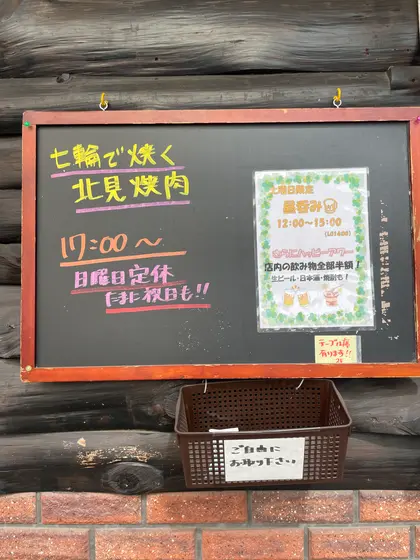 七輪で焼く
北見焼肉
17:00〜
日曜日定休
たまに祝日も!!
土曜日限定
昼呑み
12:00〜15:00
さらにハッピーアワー
店内の飲み物全部半額！
生ビール・日本酒・焼酎も！
テーブル席
有ります!!
ご自由に
お取り下さい